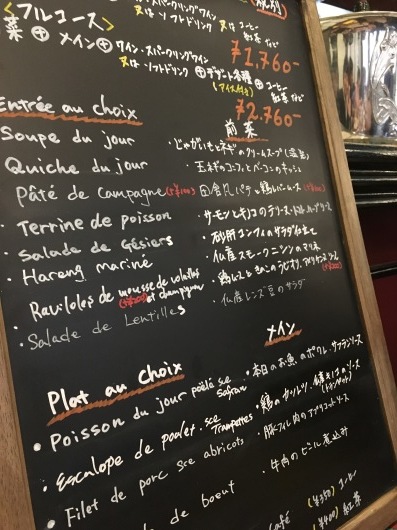 <フルコース>
又は ソフトドリンク 又は コーヒー
菜 ⊕ メイン ⊕ ワイン・スパークリングワイン ¥1,760-
又は ソフトドリンク ⊕ デザート各種 ⊕ コーヒー
(アイス付き) 紅茶 など
¥2,760-
Entrée au choix 前菜
Soupe du jour ・じゃがいもとネギのクリームスープ
Quiche du jour ・玉ネギのコンフィとベーコンのキッシュ
Pâté de Campagne (+¥100) 田舎風パテと鶏レバームース
Terrine de poisson ・サーモンと
Salade de Gésiers ・砂肝コンフィのサラダ仕立て
Hareng mariné ・仏産スモークニシンのマリネ
Ravioles de mousse de volaille et champignon (+¥200)
・Salade de Lentilles ・仏産レンズ豆のサラダ
Plat au choix メイン
・Poisson du jour poêlé sce Safran ・本日のお魚のポワレ・サフランソース
・Escalope de poulet sce Trompettes ・鶏の
・Filet de porc sce abricots ・豚ヒレ肉のアプリコットソース
de boeuf ・牛肉のビール煮込み
Café (¥350) コーヒー
(¥400) 紅茶